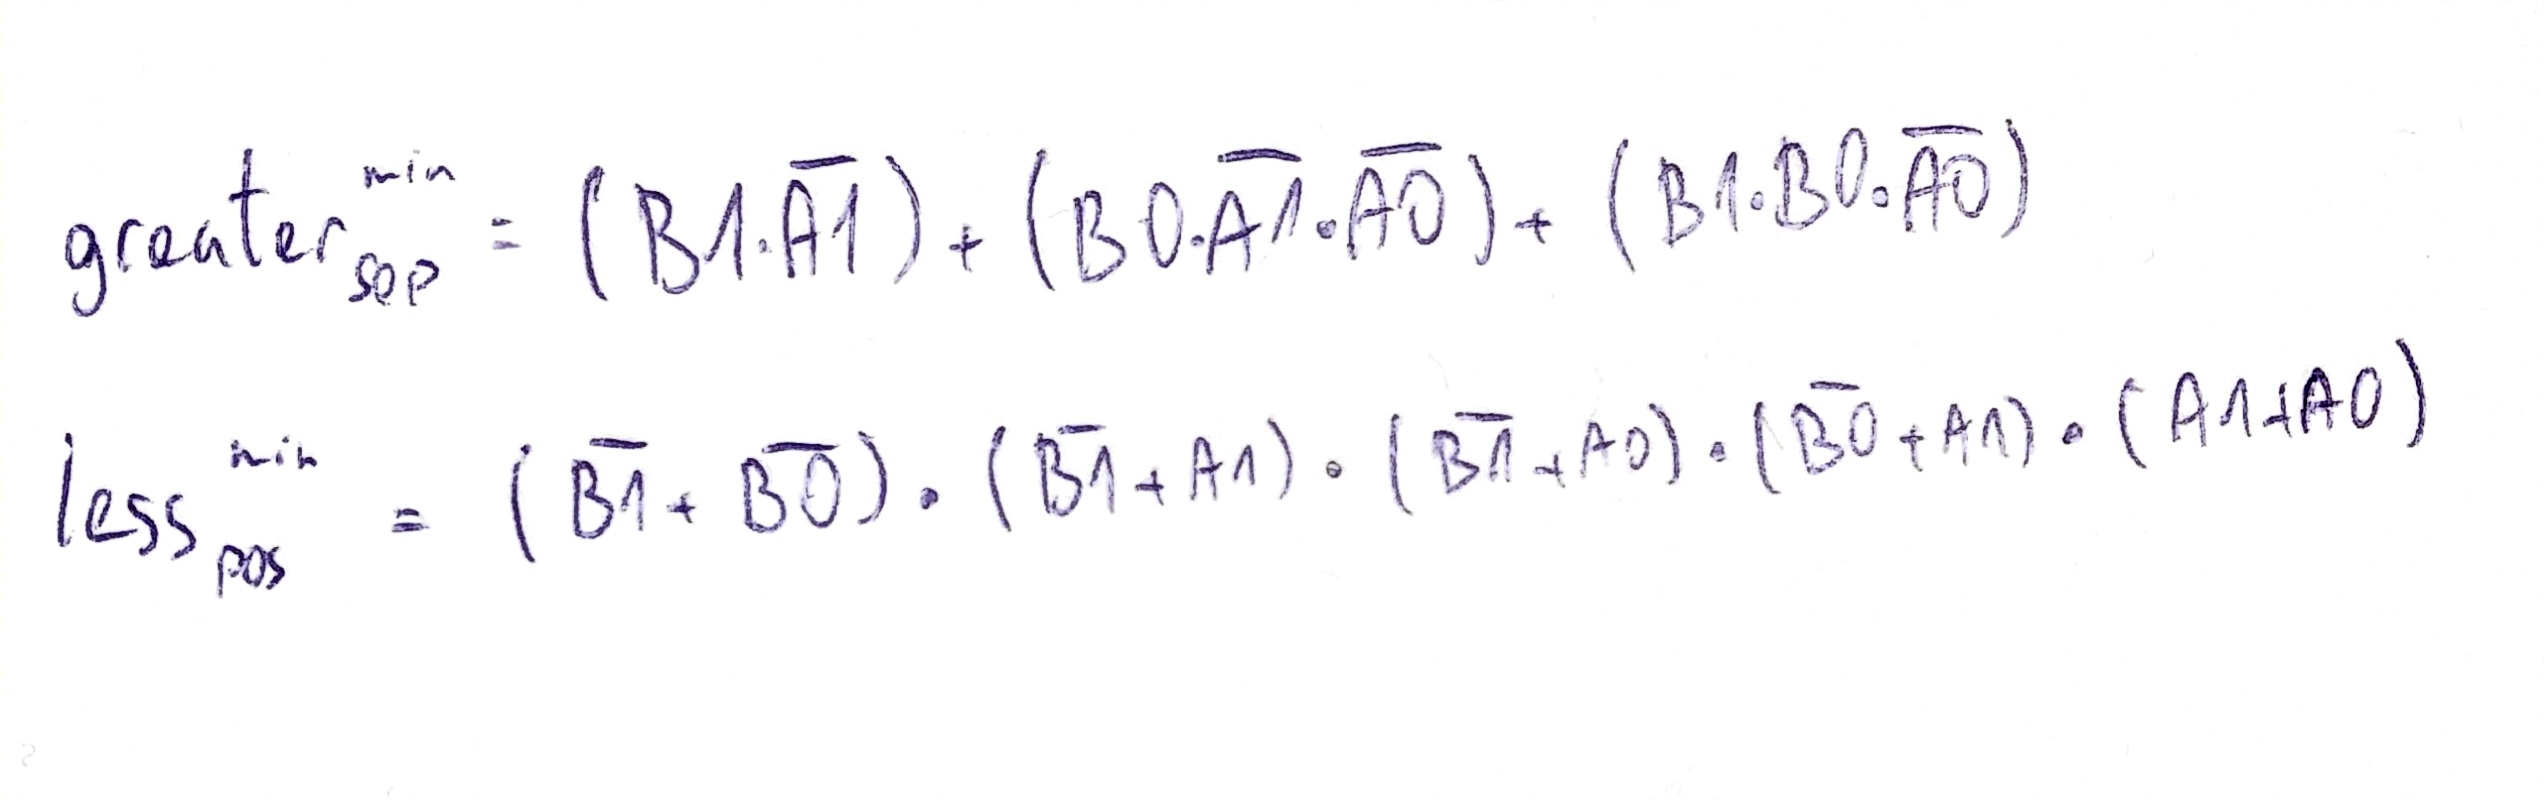 greater_{SOP}^{min} = (B1·A̅1̅) + (B0·A̅1̅·A̅0̅) + (B1·B0·A̅0̅)
less_{POS}^{min} = (B̅1̅ + B̅0̅)·(B̅1̅ + A1)·(B̅1̅ + A0)·(B̅0̅ + A1)·(A1+A0)